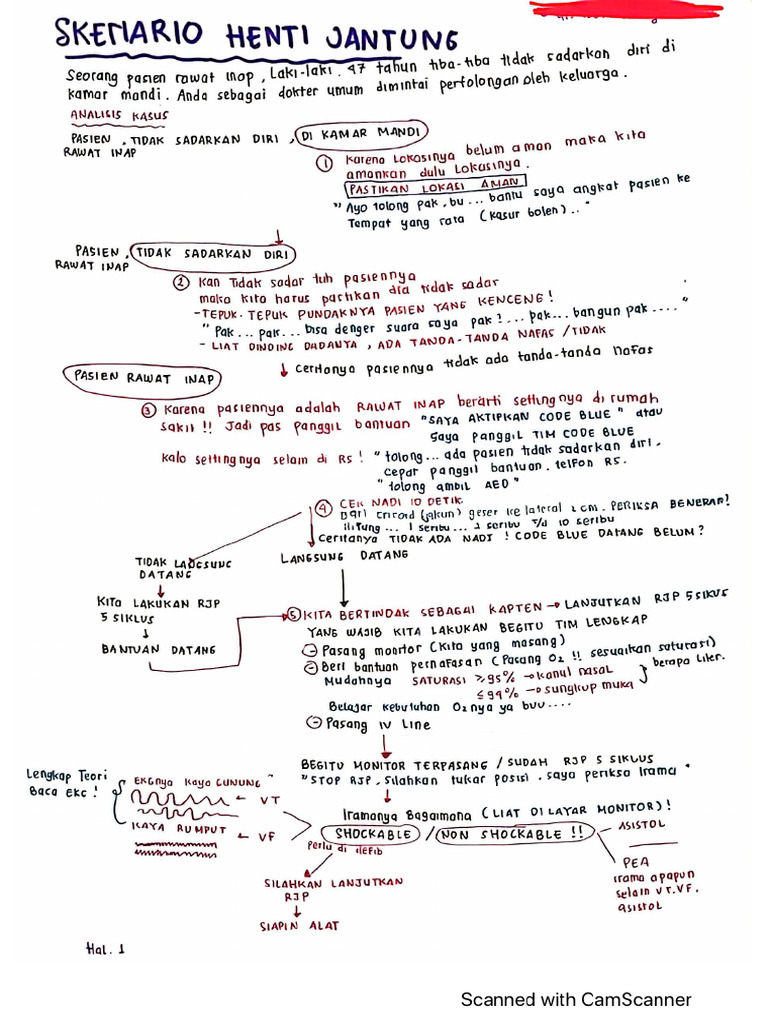 SKENARIO HENTI JANTUNG
Seorang pasien rawat inap, Laki-laki. 47 tahun tiba-tiba tidak sadarkan diri di
kamar mandi. Anda sebagai dokter umum dimintai pertolongan oleh keluarga.
ANALISIS KASUS
PASIEN, TIDAK SADARKAN DIRI, DI KAMAR MANDI
RAWAT INAP
① Karena Lokasinya belum aman maka kita
amankan dulu Lokasinya.
PASTIKAN LOKASI AMAN
" Ayo tolong pak, bu ... bantu saya angkat pasien ke
Tempat yang rata (kasur boleh) .. "
PASIEN, TIDAK SADARKAN DIRI
RAWAT INAP
② Kan Tidak sadar tuh pasiennya
maka kita harus pastikan dia tidak sadar
- TEPUK-TEPUK PUNDAKNYA PASIEN YANG KENCENG!
" Pak ... pak... bisa denger suara saya pak? ... pak... bangun pak .... "
- LIAT DINDING DADANYA, ADA TANDA-TANDA NAFAS / TIDAK
↓ Ceritanya pasiennya tidak ada tanda-tanda Nafas
PASIEN RAWAT INAP
③ Karena pasiennya adalah RAWAT INAP berarti settingnya di rumah
sakit !! Jadi pas panggil bantuan "SAYA AKTIPKAN CODE BLUE" atau
Saya panggil TIM CODE BLUE
Kalo settingnya selain di RS! "tolong... ada pasien tidak sadarkan diri,
cepar panggil bantuan. telfon RS.
"tolong ambil AED"
④ CEK NADI 10 DETIK.
Dari cricoid (jakun) geser ke lateral 2 cm. PERIKSA BENERAN!
Hitung ... 1 seribu ... 2 seribu s/d 10 seribu
Ceritanya TIDAK ADA NADI ! CODE BLUE DATANG BELUM?
TIDAK LANGSUNG
DATANG
LANGSUNG DATANG
Kita LAKUKAN RJP
5 SIKLUS
↓
BANTUAN DATANG
⑤ KITA BERTINDAK SEBAGAI KAPTEN → LANJUTKAN RJP 5 SIKUS
YANG WAJIB KITA LAKUKAN BEGITU TIM LENGKAP
- Pasang monitor (Kita yang masang)
- Beri bantuan pernafasan (Pasang O2 !! sesuaikan saturasi)
Mudahnya SATURASI ≥95% → kanul nasal
≤94% → sungkup muka
berapa Liter.
Belajar kebutuhan O2 nya ya buu ....
- Pasang IV Line
BEGITU MONITOR TERPASANG / SUDAH RJP 5 SIKLUS
"STOP RJP, Silahkan tukar posisi, saya periksa Irama"
Iramanya Bagaimana (LIAT DI LAYAR MONITOR)!
Lengkap Teori
Baca EKG !
EKGnya Kaya GUNUNG"
← VT
KAYA RUMPUT ← VF
SHOCKABLE / NON SHOCKABLE !!
Perlu di defib
ASISTOL
PEA
Irama apapun
selain VT.VF.
asistol
SILAHKAN LANJUTKAN
RJP
↓
SIAPIN ALAT
Hal. 1
Scanned with CamScanner